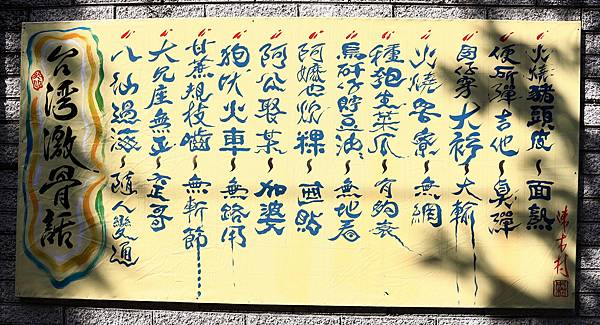 火燒豬頭皮~面熟
便所彈吉他~臭彈
囡仔穿大衫~大輸
火燒罟寮~無網
種匏生菜瓜~有夠衰
烏矸仔貯豆油~無地看
阿嬤也炊粿~貼
阿公娶某~加婆
狗吠火車~無路用
甘蔗規枝齧~無斬節……
大兄座無正~歪哥
八仙過海~隨人變通
台湾激骨話